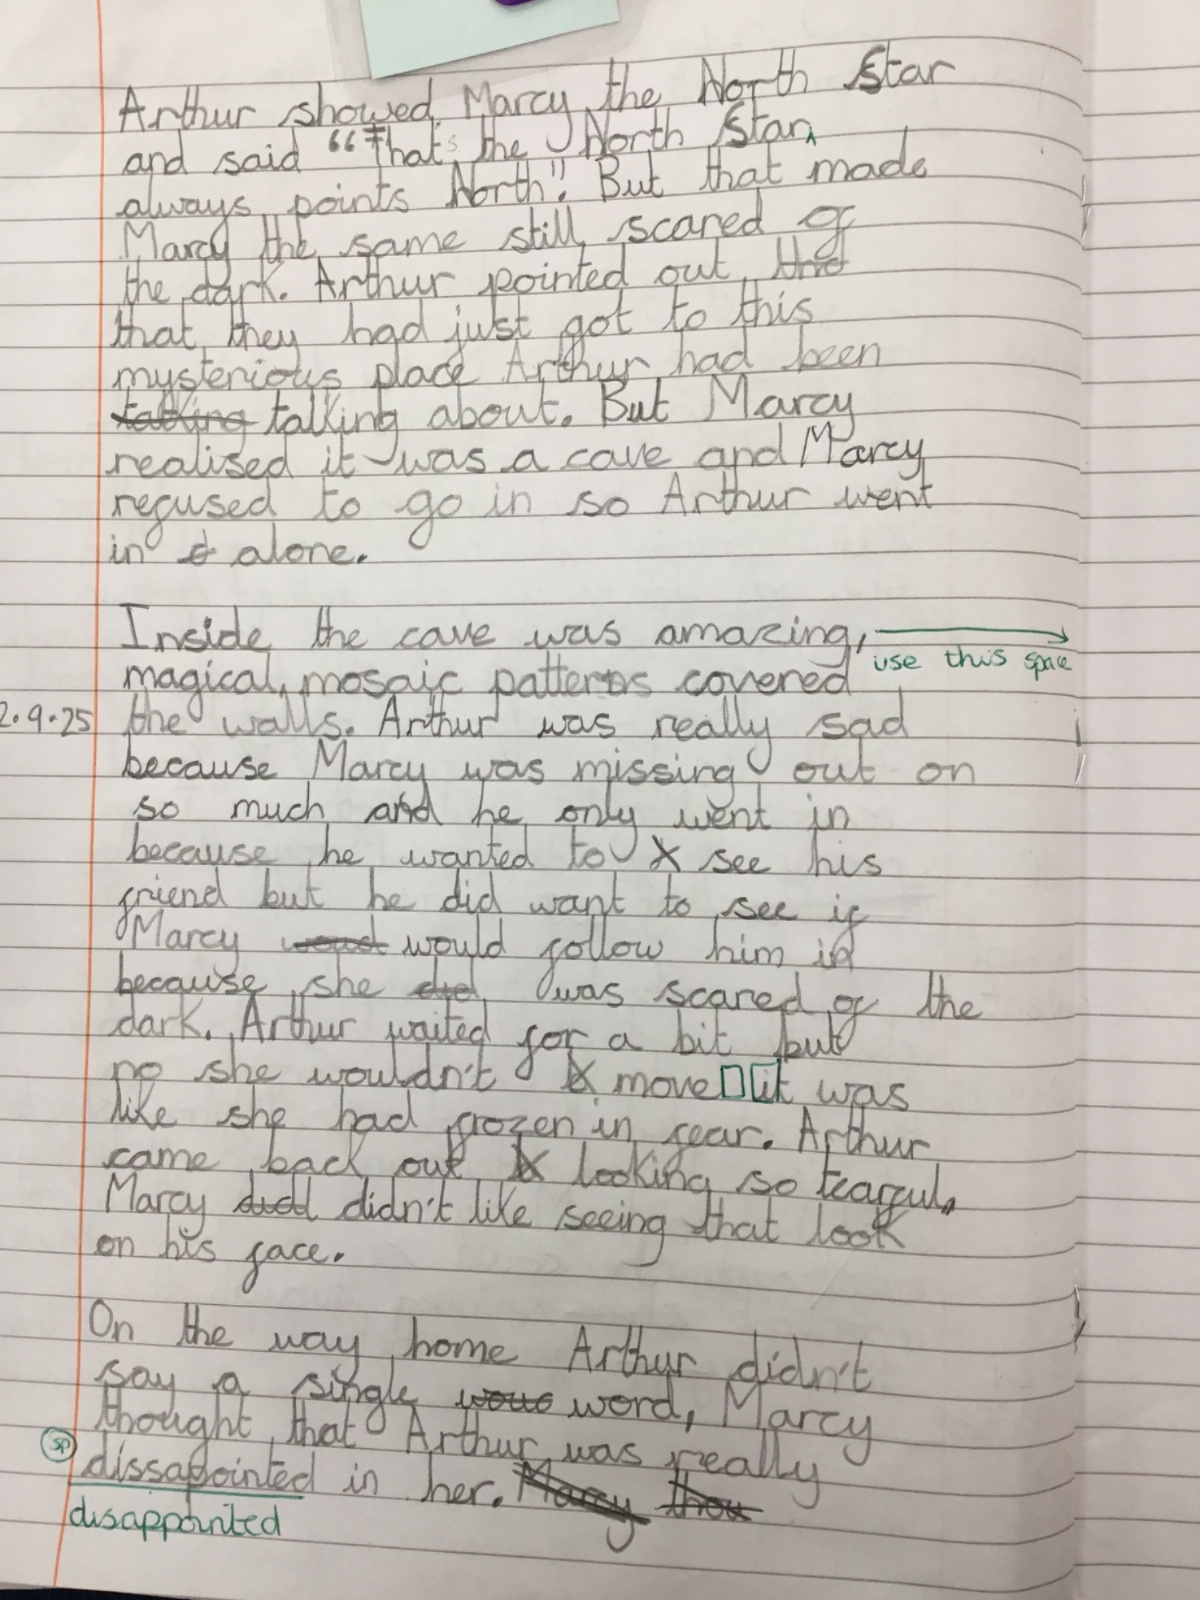 Arthur showed Marcy the North Star
and said “That's the North Star
always points North". But that made
Marcy the same still scared of
the dark. Arthur pointed out
that they had just got to this
mysterious place Arthur had been
talking about. But Marcy
realised it was a cave and Marcy
refused to go in so Arthur went
in alone.
Inside the cave was amazing,
use this space
magical, mosaic patterns covered
2.9.25 the walls. Arthur was really sad
because Marcy was missing out on
so much and he only went in
because he wanted to see his
friend but he did want to see if
Marcy would follow him in
because she was scared of the
dark. Arthur waited for a bit but
no she wouldn't move it was
like she had frozen in fear. Arthur
came back out looking so tearful,
Marcy didn't like seeing that look
on his face.
On the way home Arthur didn't
say a single word, Marcy
thought that Arthur was really
sp dissapointed in her. Marcy thou
disappointed